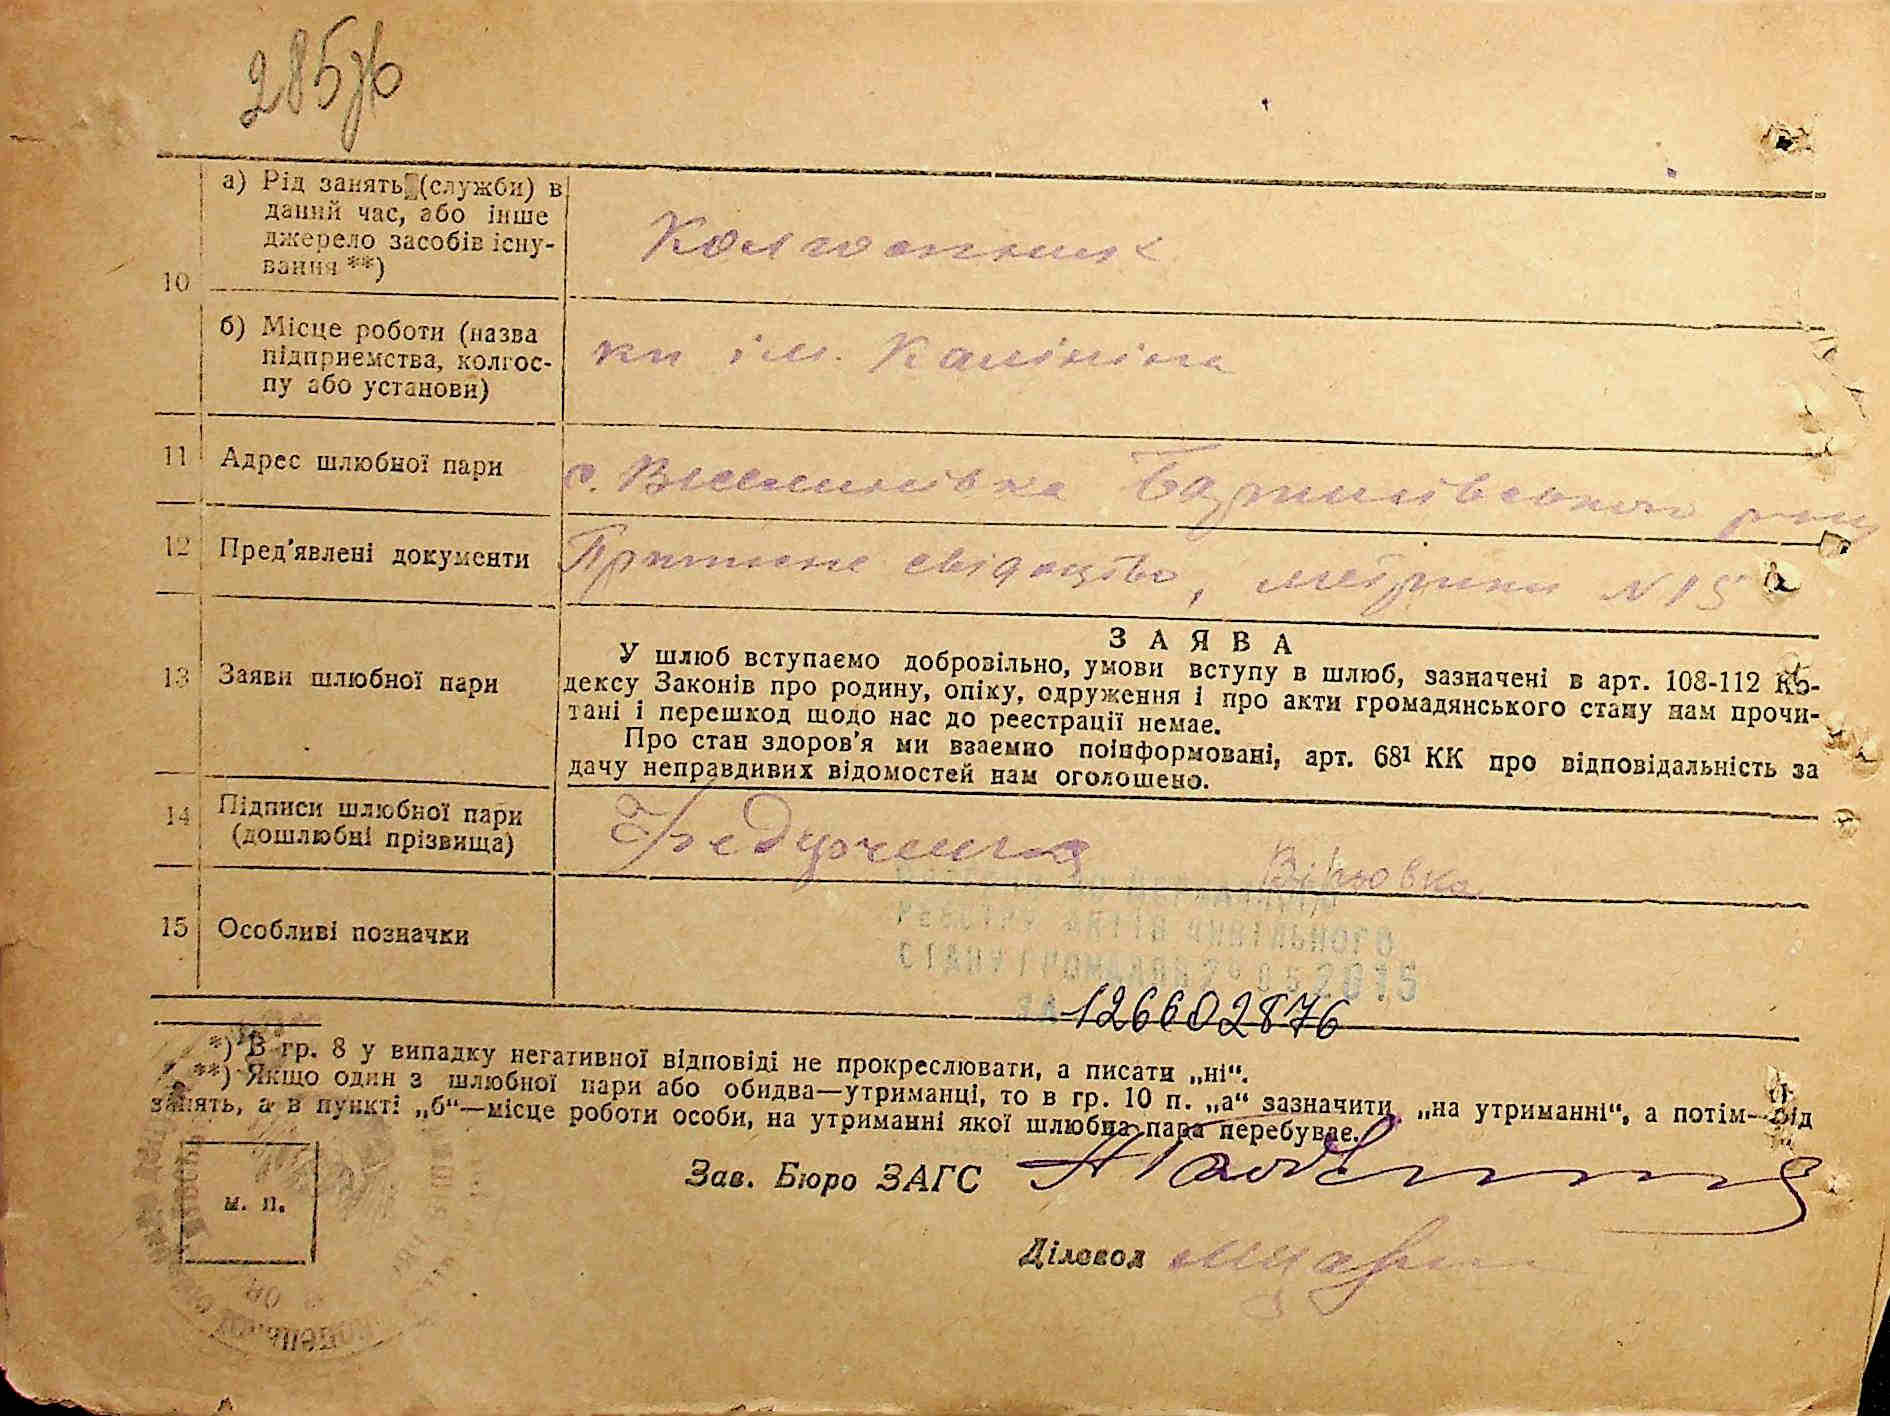 285
а) Рід занять (служби) в
даний час, або інше
джерело засобів існу-
вання **)
Колгоспник
10
б) Місце роботи (назва
підприємства, колгос-
пу або установи)
кп ім. Калініна
11 Адрес шлюбної пари
с. Веселинівка Баришівського
12 Пред'явлені документи
Приписне свідоцтво, метрики N 15
13 Заяви шлюбної пари
ЗАЯВА
У шлюб вступаємо добровільно, умови вступу в шлюб, зазначені в арт. 108-112 Ко-
дексу Законів про родину, опіку, одруження і про акти громадянського стану нам прочи-
тані і перешкод щодо нас до реєстрації немає.
Про стан здоров'я ми взаємно поінформовані, арт. 68¹ КК про відповідальність за
дачу неправдивих відомостей нам оголошено.
14 Підписи шлюбної пари
(дошлюбні прізвища)
Федорченко Вірьовка
15 Особливі позначки
ДО ДЕРЖАВНОГО
РЕЄСТРУ АКТІВ ЦИВІЛЬНОГО
СТАНУ ГРОМАДЯН 05 2015
ЗА 126602876
*) В гр. 8 у випадку негативної відповіді не прокреслювати, а писати „ні“.
**) Якщо один з шлюбної пари або обидва—утриманці, то в гр. 10 п. „а“ зазначити „на утриманні“, а потім—рід
занять, а в пункті „б“—місце роботи особи, на утриманні якої шлюбна пара перебуває.
Зав. Бюро ЗАГС
м. п.
Діловод